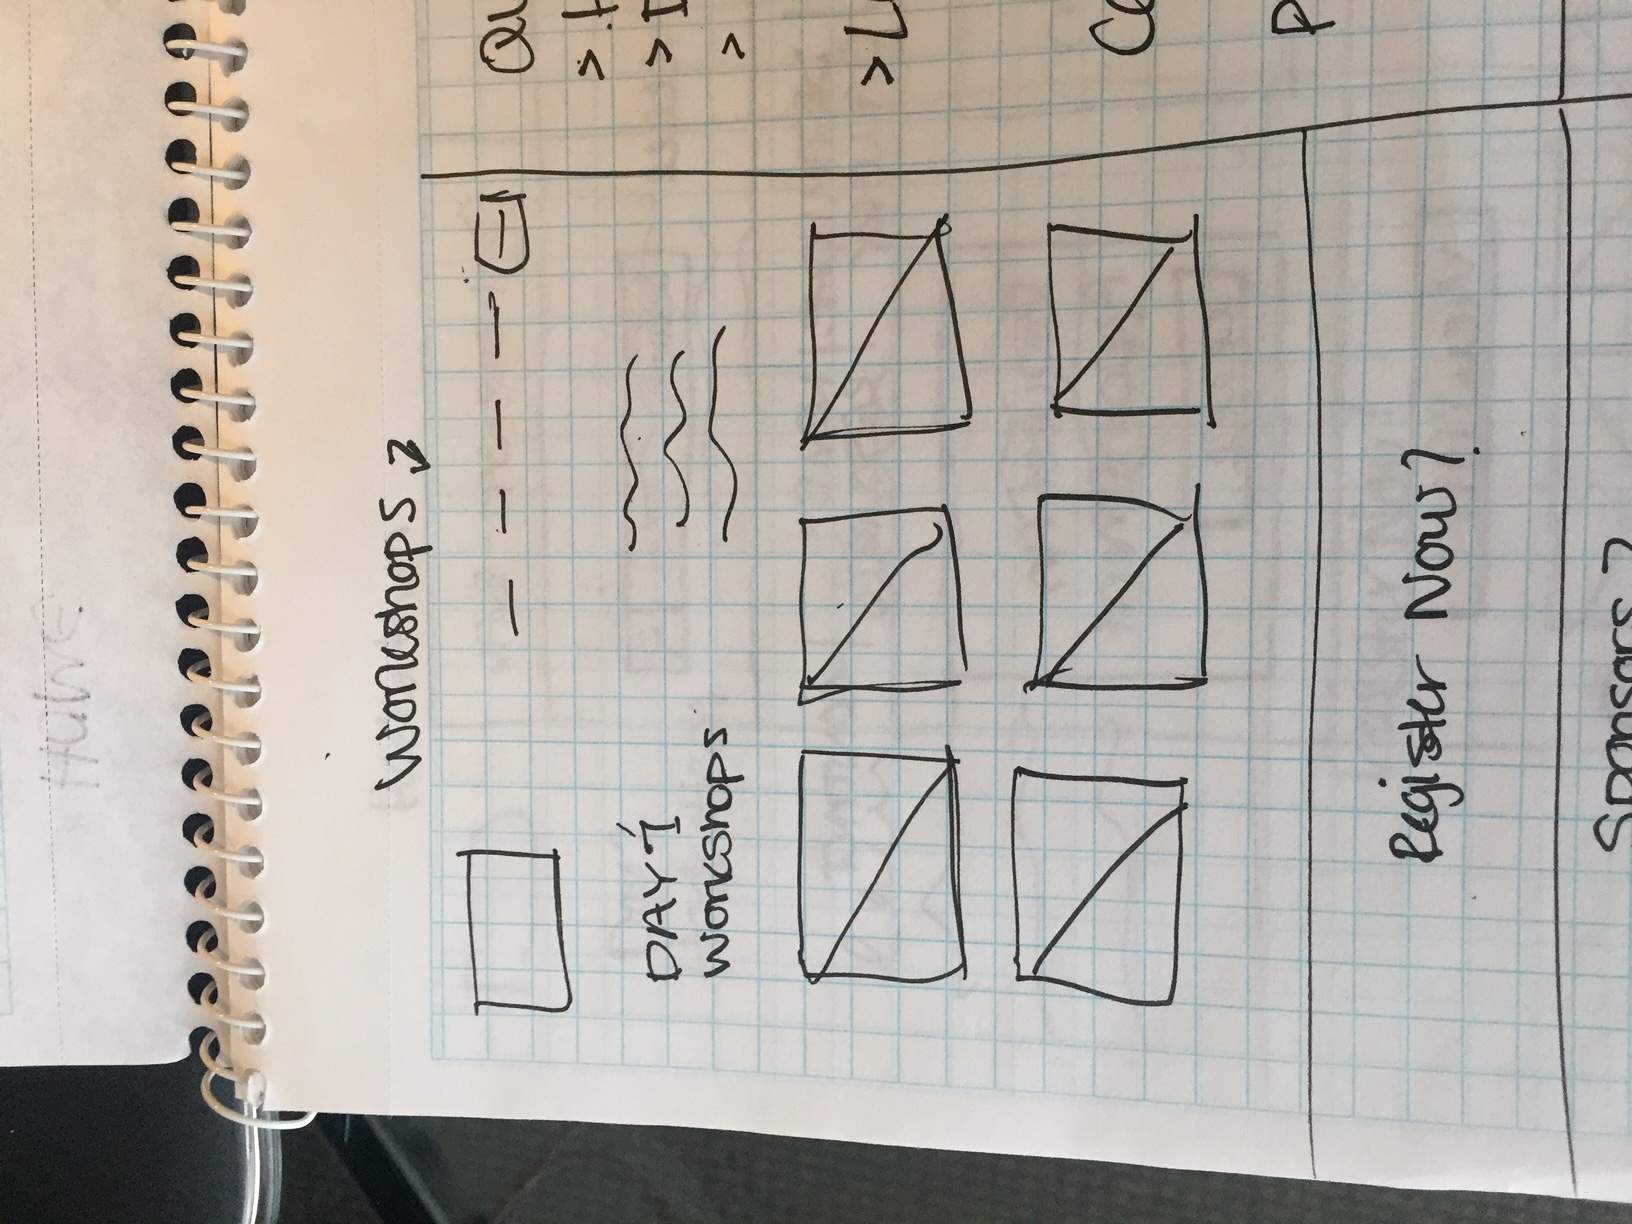 HOME
Workshops ?
DAY 1
Workshops
Register Now?
Sponsors ?
QU
>
>
>
> L
P